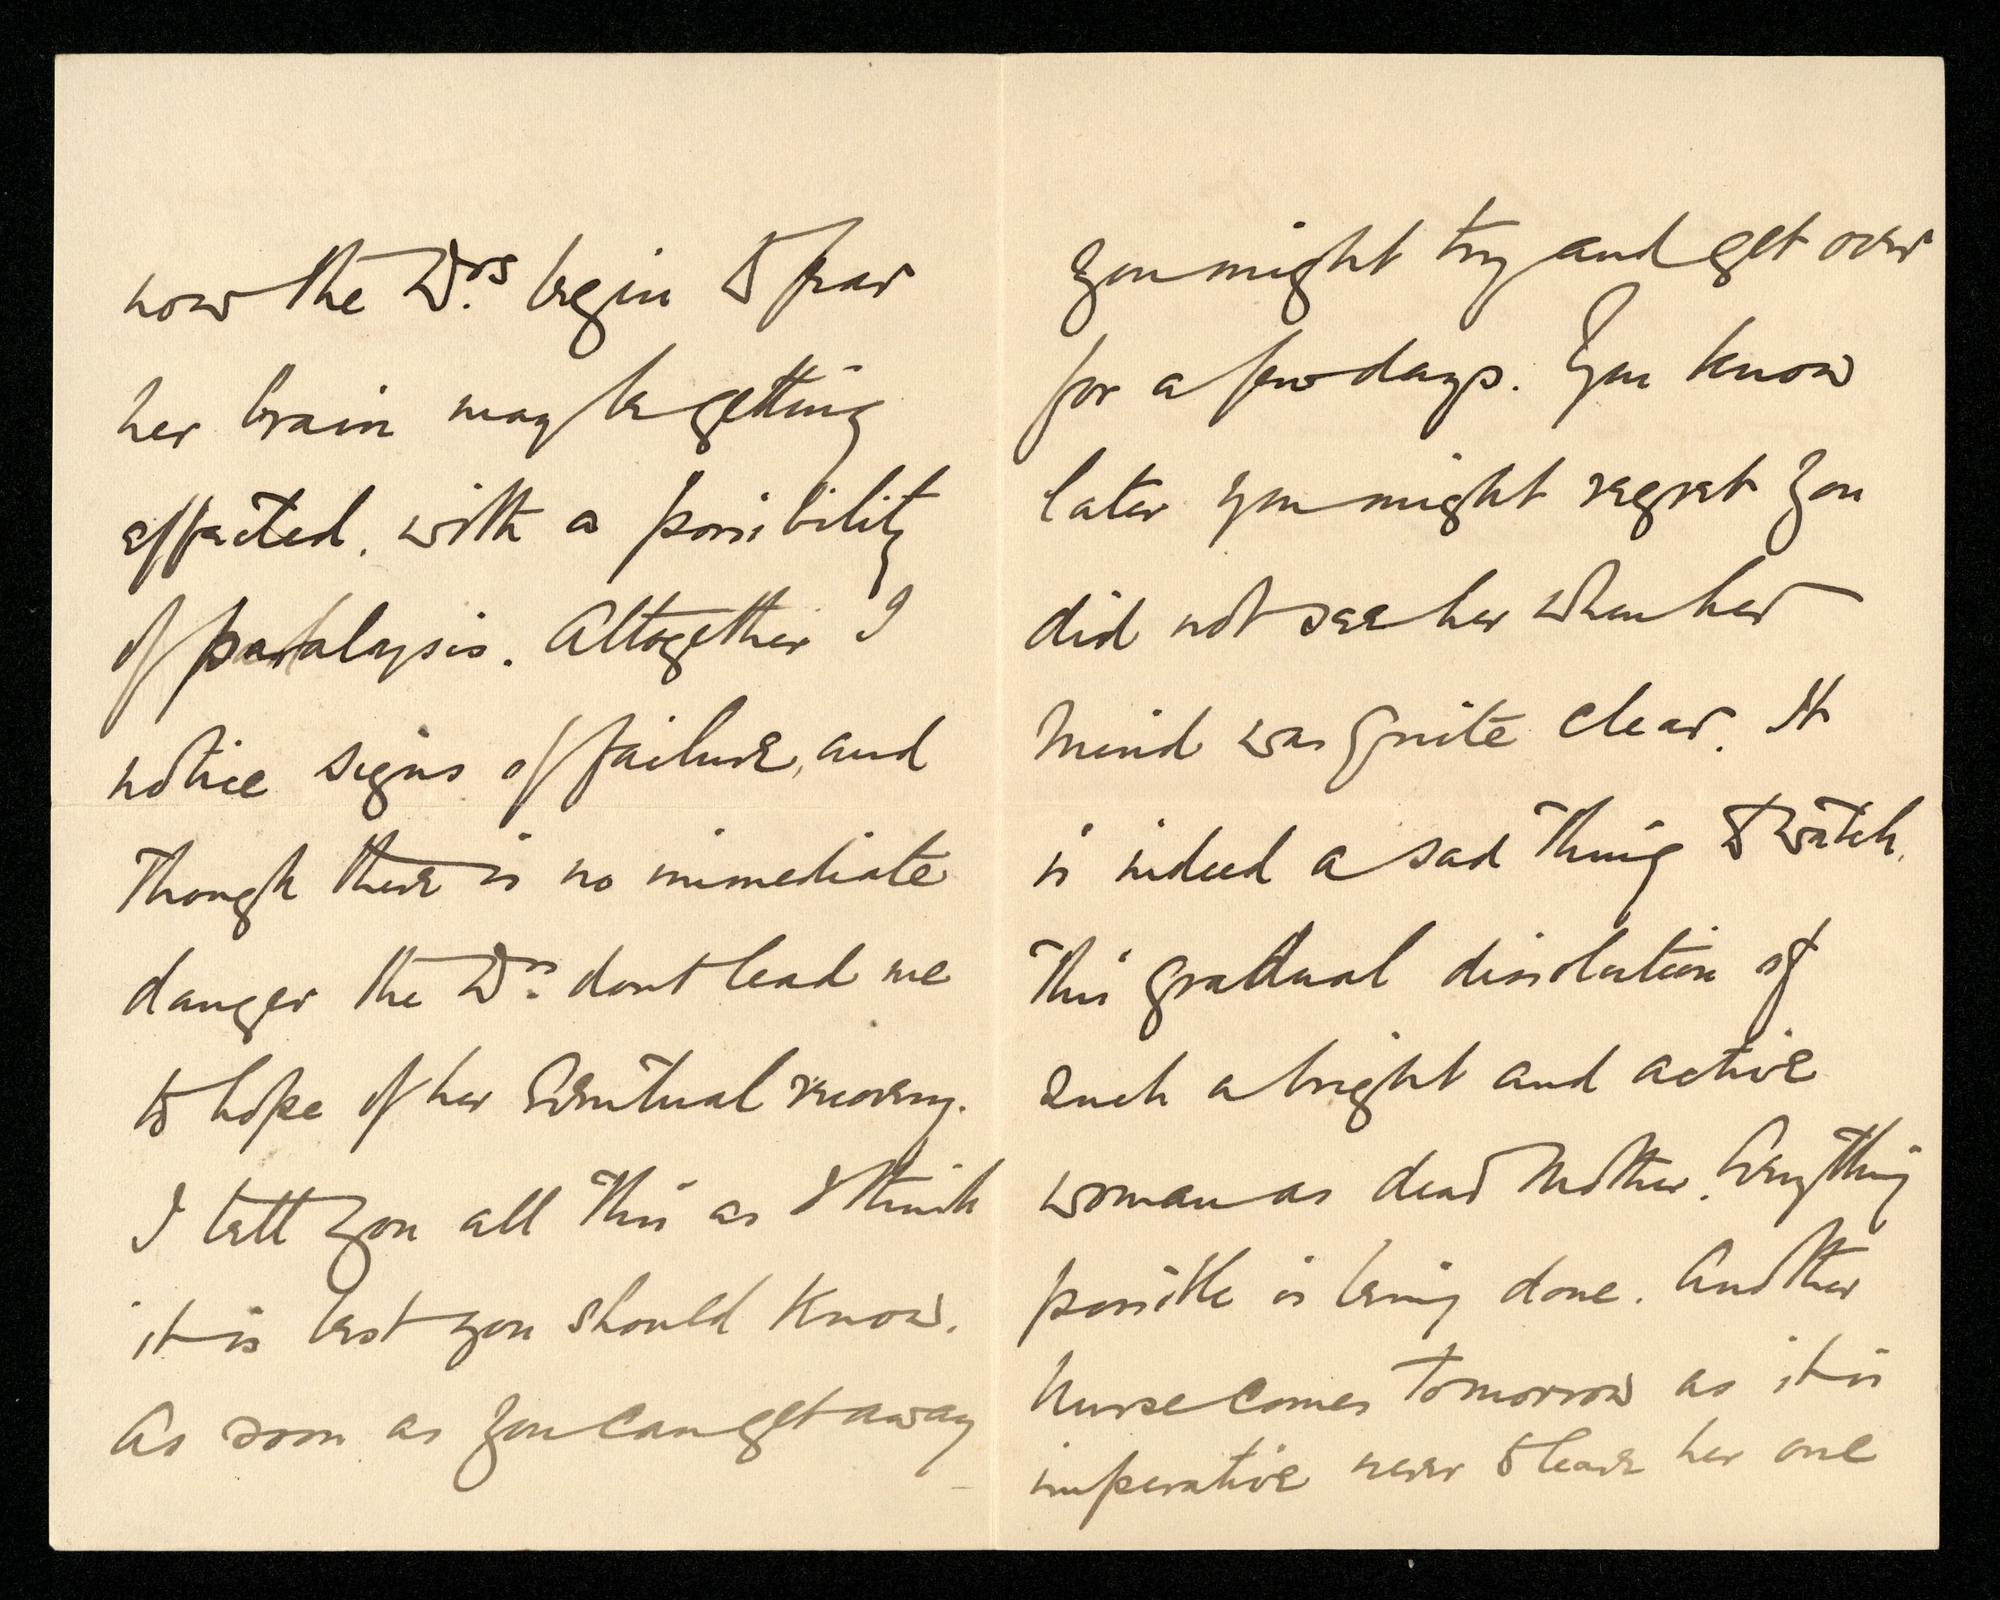 now the Drs begin to fear
her brain may be getting
effected, with a possibility
of paralysis. Altogether I
notice signs of failure, and
though there is no immediate
danger the Drs dont lead me
to hope of her Eventual recovery.
I tell you all this as I think
it is best you should know.
As soon as you can get away
you might try and get over
for a few days. You know
later you might regret you
did not see her when her
mind was quite clear. It
is indeed a sad thing to watch
this gradual dissolution of
such a bright and active
woman as dear Mother. Everything
possible is being done. Another
nurse comes tomorrow as it is
imperative never to leave her one